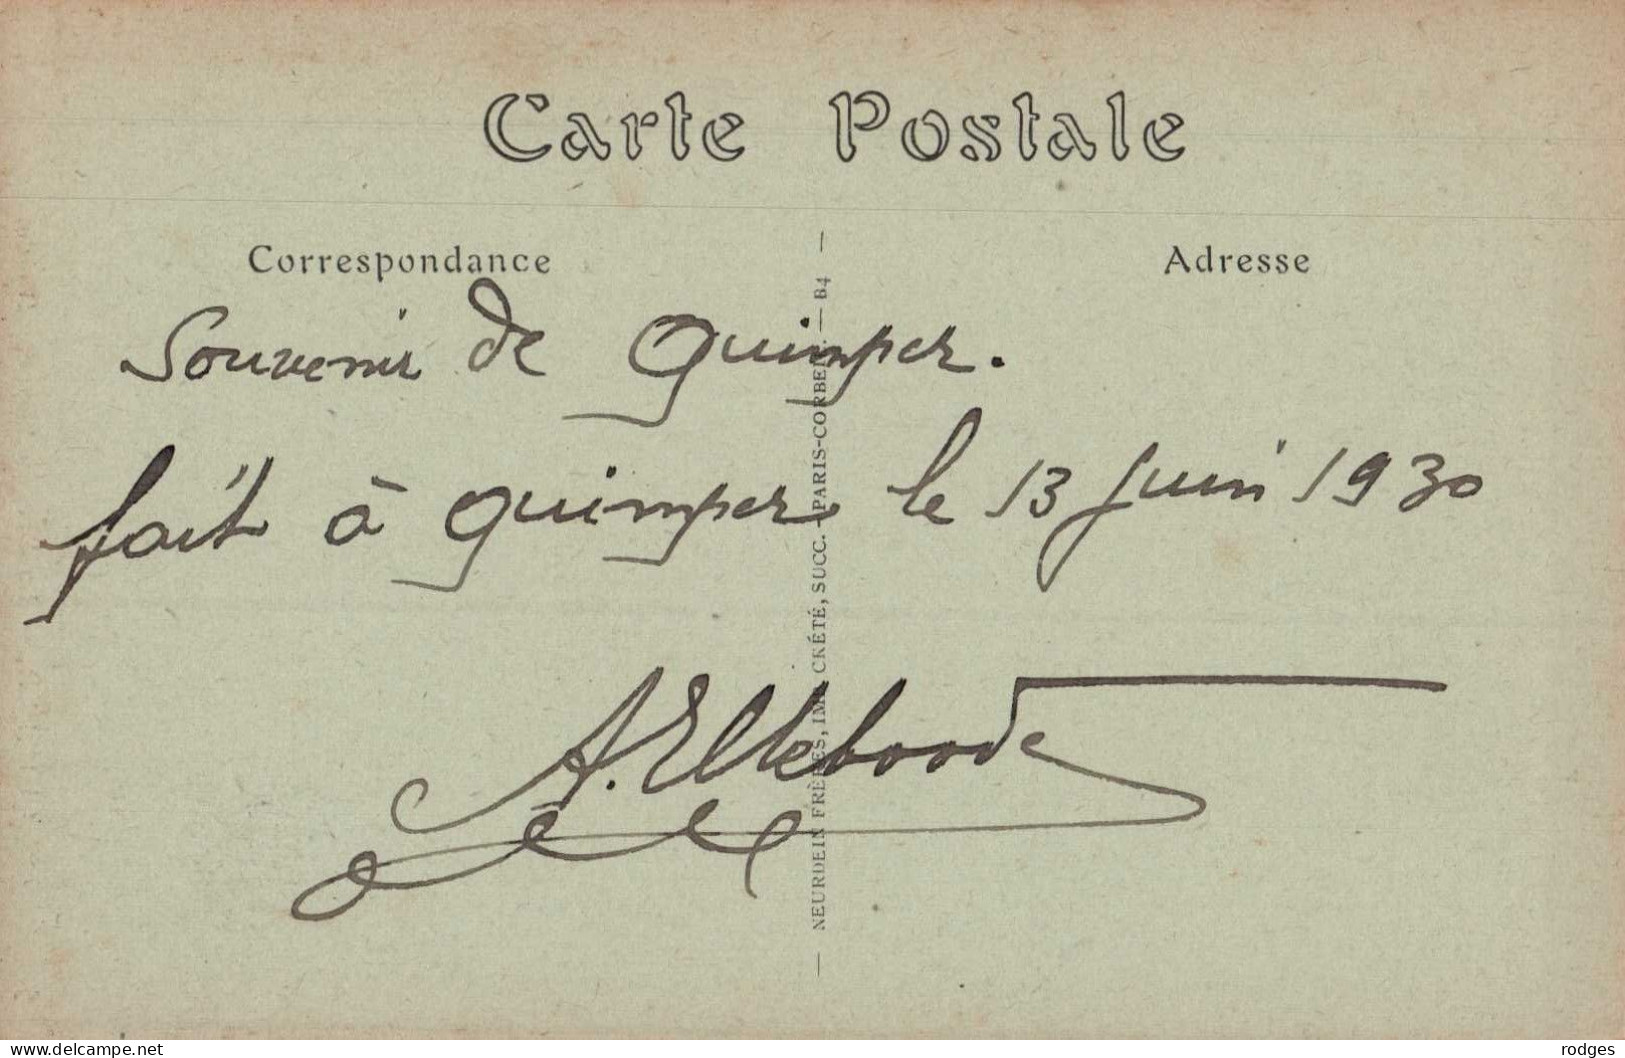 Carte Postale
Correspondance
Adresse
Souvenir de Quimper.
fait à Quimper le 13 juin 1930
A. Elleboode
— NEURDEIN FRÈRES, IMP. CRÉTÉ, SUCC. - PARIS-CORBEIL — B4 —
www.delcampe.net
rodges